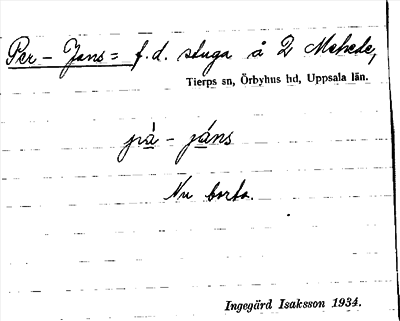 Per-Jans= f.d. stuga å 2 Mehede,
Tierps sn, Örbyhus hd, Uppsala län.
pä - jáns
Nu borta.
Ingegärd Isaksson 1934.